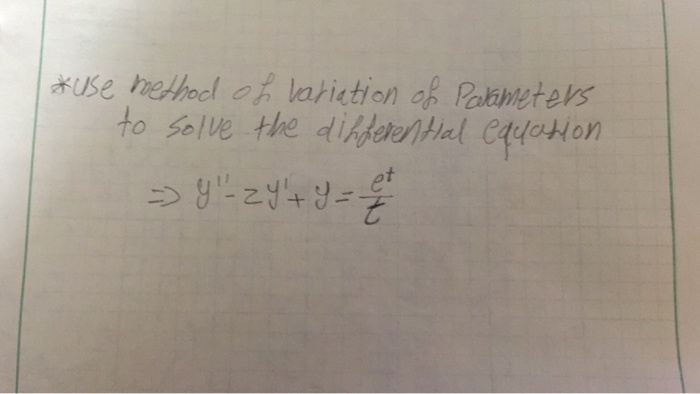 *use method of variation of Parameters
to solve the differential equation
=> y'' - 2y' + y = e^t/t